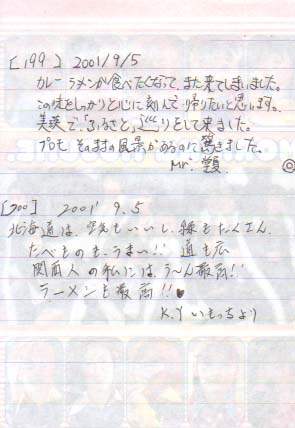 [199] 2001/9/5
カレーラメンが食べたくなって、また来てしまいました。
この味をしっかりと心に刻んで帰りたいと思います。
美瑛で、「ふるさと」巡りをして来ました。
プロモそのままの風景があるのに驚きました。
Mr.
[200] 2001' 9.5
北海道は、空もいいし、緑もたくさん
たべものも、うまい!! 道も広
関西人の私には、う〜ん最高!!
ラーメンも最高!!♥
K.Y いもっちより